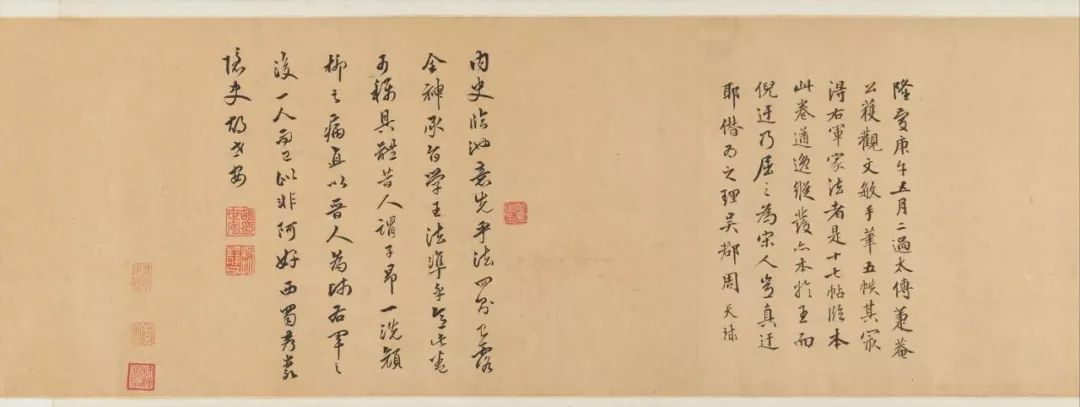 隆慶庚午五月二過太傅蘧菴
公獲觀文敏手筆五帙其最
得右軍家法者是十七帖臨本
此卷遒逸縱發亦本於王而
倪迂乃屈之為宋人豈真迂
耶僭為之理吳郡周天球
內史臨池意先乎法四露
全神承旨學王法準乎意此卷
可稱具體昔人謂子昂一洗顏
柳之病直以晉人為師右軍之
後一人而已此非阿好西蜀
史胡世安